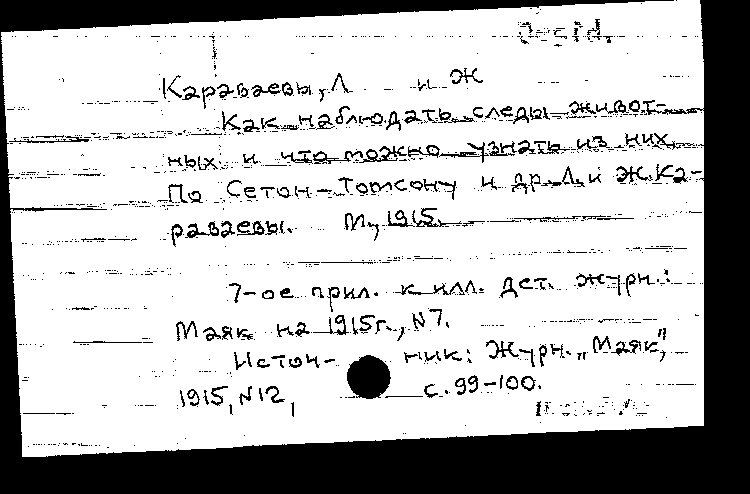 Desid.
Караваевы, Л и Ж
Как наблюдать следы живот-
ных и что можно узнать из них.
По Сетон-Томсону и др. Л. и Ж. Ка-
раваевы. М., 1915.
7-ое прил. к илл. дет. журн.:
Маяк на 1915г., N7.
Источ- ник: Журн. „Маяк",
1915, N12, с. 99-100.